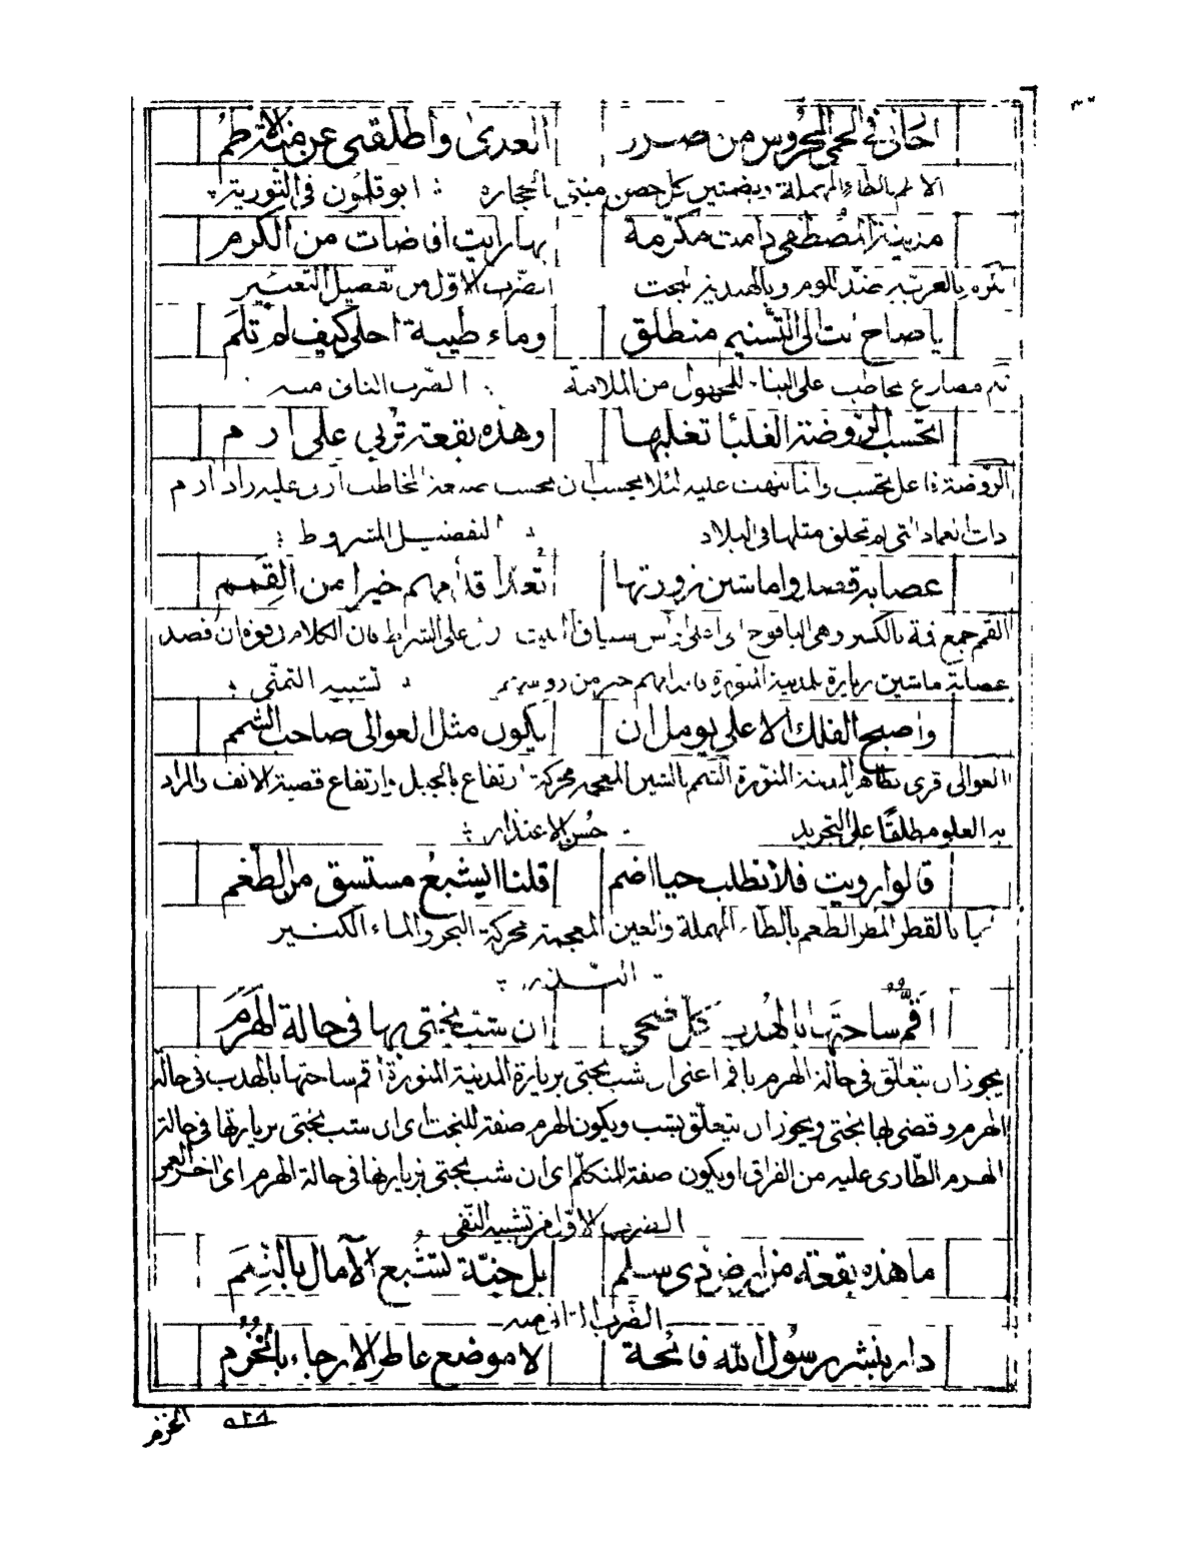 ٣٠
في الحمى المحروس من صدر العدى وأطلقني عن
الاطم بالطاء المهملة وبضمتين كل حصن مبني بالحجارة ؞ ابو قلمون في التورية ؞
مدينة المصطفى دامت مكرّمة بها رايت افاضات من الكرم
بالعربية ضد اللوم وبالهندية الضرب الاوّل من تفصيل
يا صاح الى التسنيم منطلق وماء طيبة احلى كيف لم تلم
مضارع مخاطب على البناء للمجهول من الملامة ؞ الضرب الثاني منه
اتحسب الروضة الغلبا تغلبها وهذه بقعة تربي على ارم
الروضة فاعل تحسب وانا نبهت عليه لئلا يحسب ان تحسب صيغة المخاطب اربى عليه زاد ارم
ذات العماد التي لم تخلق مثلها في البلاد ؞ التفضيل المشروط ؞
عصابة قصدوا ماشين زورتها تعد اقدامهم خيرا من القمم
القمم جمع قمة بالكسر وهي اليافوخ اي اعلى الراس سياق البيت على الشرط فان الكلام في قوة ان قصد
عصابة ماشين زيارة المدينة المنورة فاقدامهم خير من روسهم ؞ تشبيه التمني ؞
واصبح الفلك الاعلى يومل ان يكون مثل العوالي صاحب الشمم
العوالي قرى بظاهر المدينة المنورة الشمم بالشين المعجمة محركة ارتفاع بالجبل وارتفاع قصبة الانف والمراد
به العلو مطلقا على التجريد ؞ حسن الاعتذار ؞
قالوا رويت فلا تطلب حيا اضم قلنا ايشبع مستسق من الطغم
الحيا بالقطر المطر الطغم بالطاء المهملة والغين المعجمة محركة البحر والماء الكثير
؞ النذر ؞
اقم ساحتها بالهدب ان شب بختي بها في حالة الهرم
يجوز ان يتعلق في حالة الهرم باقم اعني ان شب بختي بزيارة المدينة المنورة اقم ساحتها بالهدب في حالة
الهرم وقضى لها بختي ويجوز ان يتعلق بشب ويكون الهرم صفة للبخت اي ان شب بختي بزيارتها في حالة
الهرم الطاري عليه من الفراق او يكون صفة المتكلم اي ان شب بختي بزيارتها في حالة الهرم اي اخر العمر
الضرب الاول من تشبيه النفي
ما هذه بقعة من ارض ذي سلم بل جنة تشبع الآمال بالنعم
الضرب الثاني منه
دار بنشر رسول الله فائحة لا موضع عاطر الارجاء بالخزم
٥٢٨
الخزم